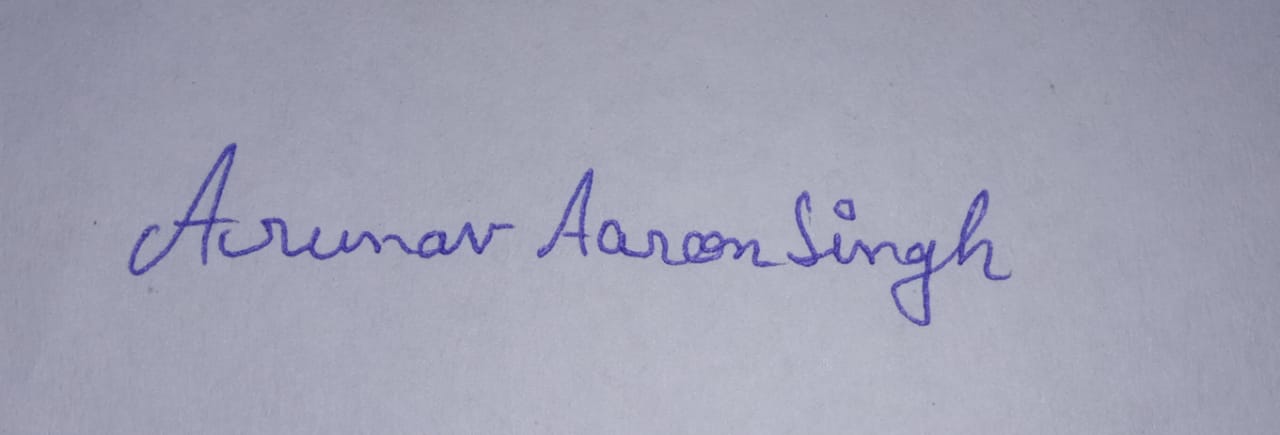 Arunav Aaron Singh